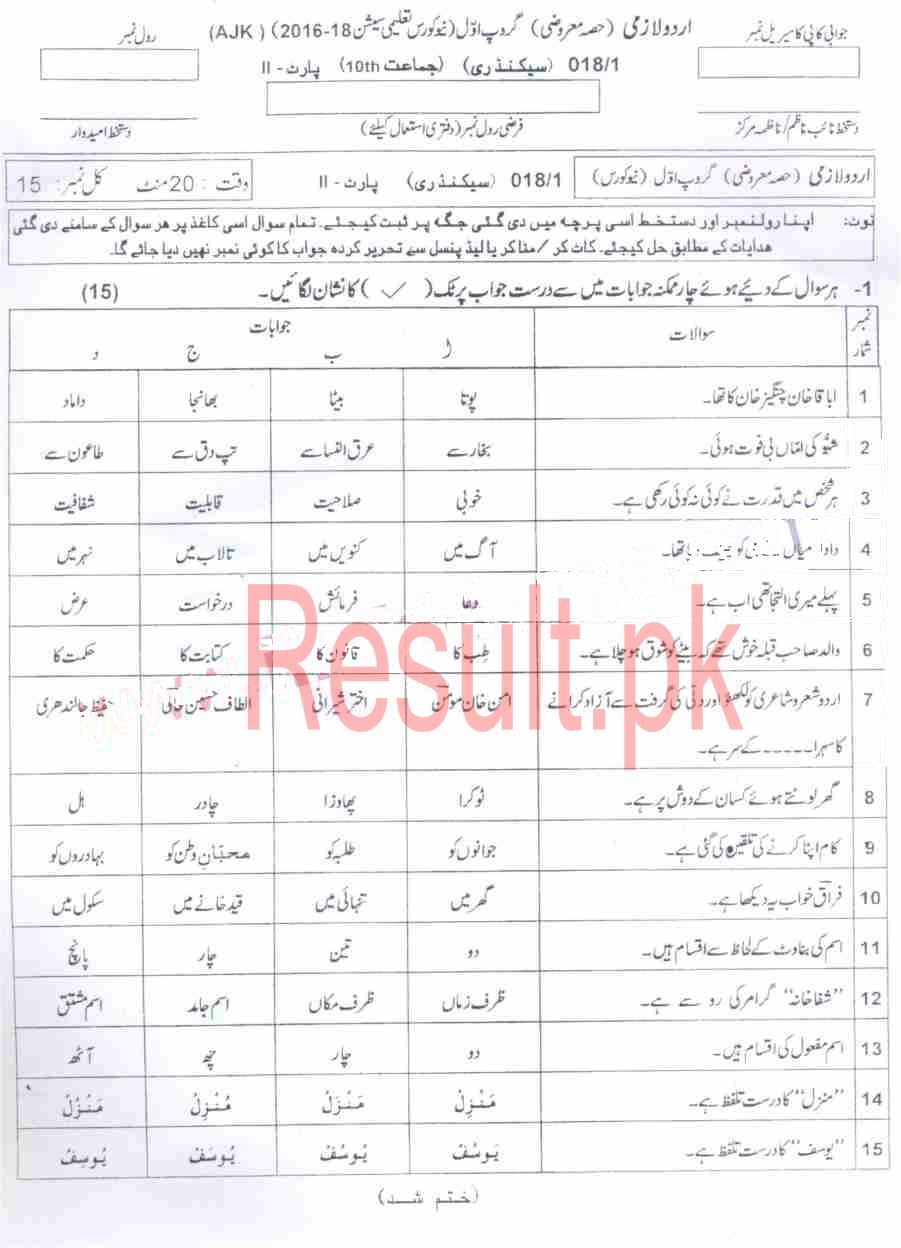 جوابی کاپی کا سیریل نمبر
اردو لازمی (حصہ معروضی) گروپ اوّل (نیو کورس تعلیمی سیشن 18-2016) (AJK)
رول نمبر
018/1 (سیکنڈری) (جماعت 10th) پارٹ - II
دستخط نائب ناظم / ناظمہ مرکز
فرضی رول نمبر (دفتری استعمال کیلئے)
دستخط امیدوار
اردو لازمی (حصہ معروضی) گروپ اوّل (نیو کورس) 018/1 (سیکنڈری) پارٹ - II وقت : 20 منٹ کل نمبر: 15
نوٹ: اپنا رولنمبر اور دستخط اسی پرچہ میں دی گئی جگہ پر ثبت کیجئے۔ تمام سوال اسی کاغذ پر ہر سوال کے سامنے دی گئی
ہدایات کے مطابق حل کیجئے۔ کاٹ کر / مٹا کر یا لیڈ پنسل سے تحریر کردہ جواب کا کوئی نمبر نہیں دیا جائے گا۔
1- ہر سوال کے دیے ہوئے چار ممکنہ جوابات میں سے درست جواب پر ٹک (✓) کا نشان لگائیں۔ (15)
نمبر شمار سوالات جوابات
ا ب ج د
1 اباقا خان چنگیز خان کا تھا۔ پوتا بیٹا بھانجا داماد
2 شبّو کی امّاں بی فوت ہوئی۔ بخار سے عرق النسا سے تپ دق سے طاعون سے
3 ہر شخص میں قدرت نے کوئی نہ کوئی رکھی ہے۔ خوبی صلاحیت قابلیت شفافیت
4 دادا میاں کو تھا۔ آگ میں کنویں میں تالاب میں نہر میں
5 پہلے میری التجا تھی اب ہے۔ دعا فرمائش درخواست عرض
6 والد صاحب قبلہ خوش تھے کہ بیٹے کو شوق ہو چلا ہے۔ طِب کا قانون کا کتابت کا حکمت کا
7 اردو شعر و شاعری کو لکھنؤ اور دلّی کی گرفت سے آزاد کرانے امن خان مومنؔ اختر شیرانی الطاف حسین حالیؔ حفیظ جالندھری
کا سہرا ۔۔۔۔۔ کے سر ہے۔
8 گھر لوٹتے ہوئے کسان کے دوش پر ہے۔ ٹوکرا پھاوڑا چادر ہل
9 کام اپنا کرنے کی تلقین کی گئی ہے۔ جوانوں کو طلبہ کو محبّانِ وطن کو بہادروں کو
10 فراقؔ خواب یہ دیکھا ہے۔ گھر میں تنہائی میں قید خانے میں سکول میں
11 اسم کی بناوٹ کے لحاظ سے اقسام ہیں۔ دو تین چار پانچ
12 "شفاخانہ" گرامر کی رو سے ہے۔ ظرف زماں ظرف مکاں اسم جامد اسم مشتق
13 اسم مفعول کی اقسام ہیں۔ دو چار چھ آٹھ
14 "منزل" کا درست تلفظ ہے۔ مَنْزِلْ مَنْزَلْ مُنْزِلْ مَنْزُلْ
15 "یوسف" کا درست تلفظ ہے۔ یَوسُفْ یُوسُفْ یُوسَفْ یُوسِفْ
(ختم شد)
Result.pk